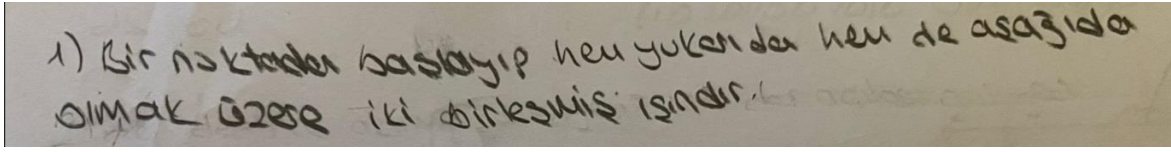 1) Bir noktadan başlayıp hem yukarıda hem de aşağıda
olmak üzere iki birleşmiş ışındır.